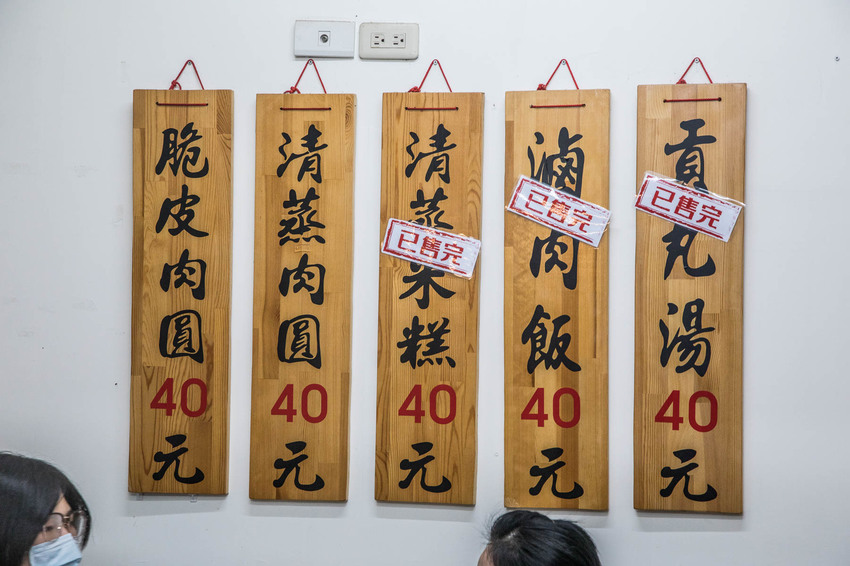 脆皮肉圓40元
清蒸肉圓40元
清蒸菜糕40元
已售完
滷肉飯40元
已售完
貢丸湯40元
已售完